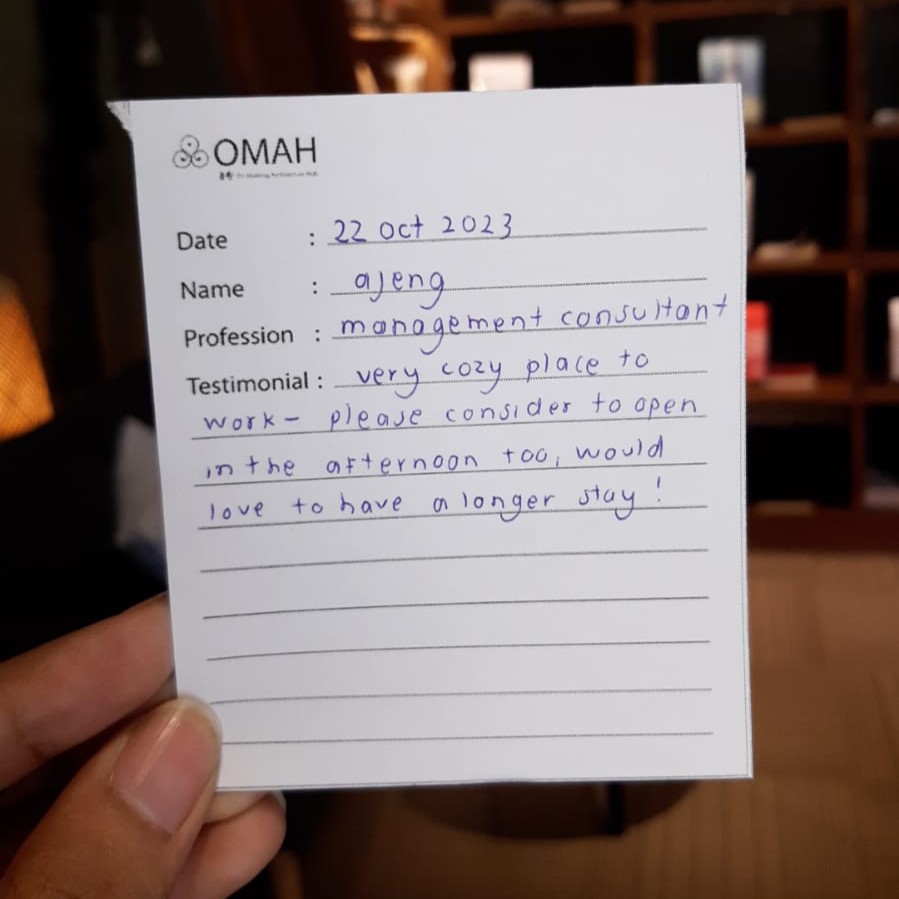 OMAH
Date : 22 oct 2023
Name : ajeng
Profession : management consultant
Testimonial : very cozy place to
work - please consider to open
in the afternoon too, would
love to have a longer stay!